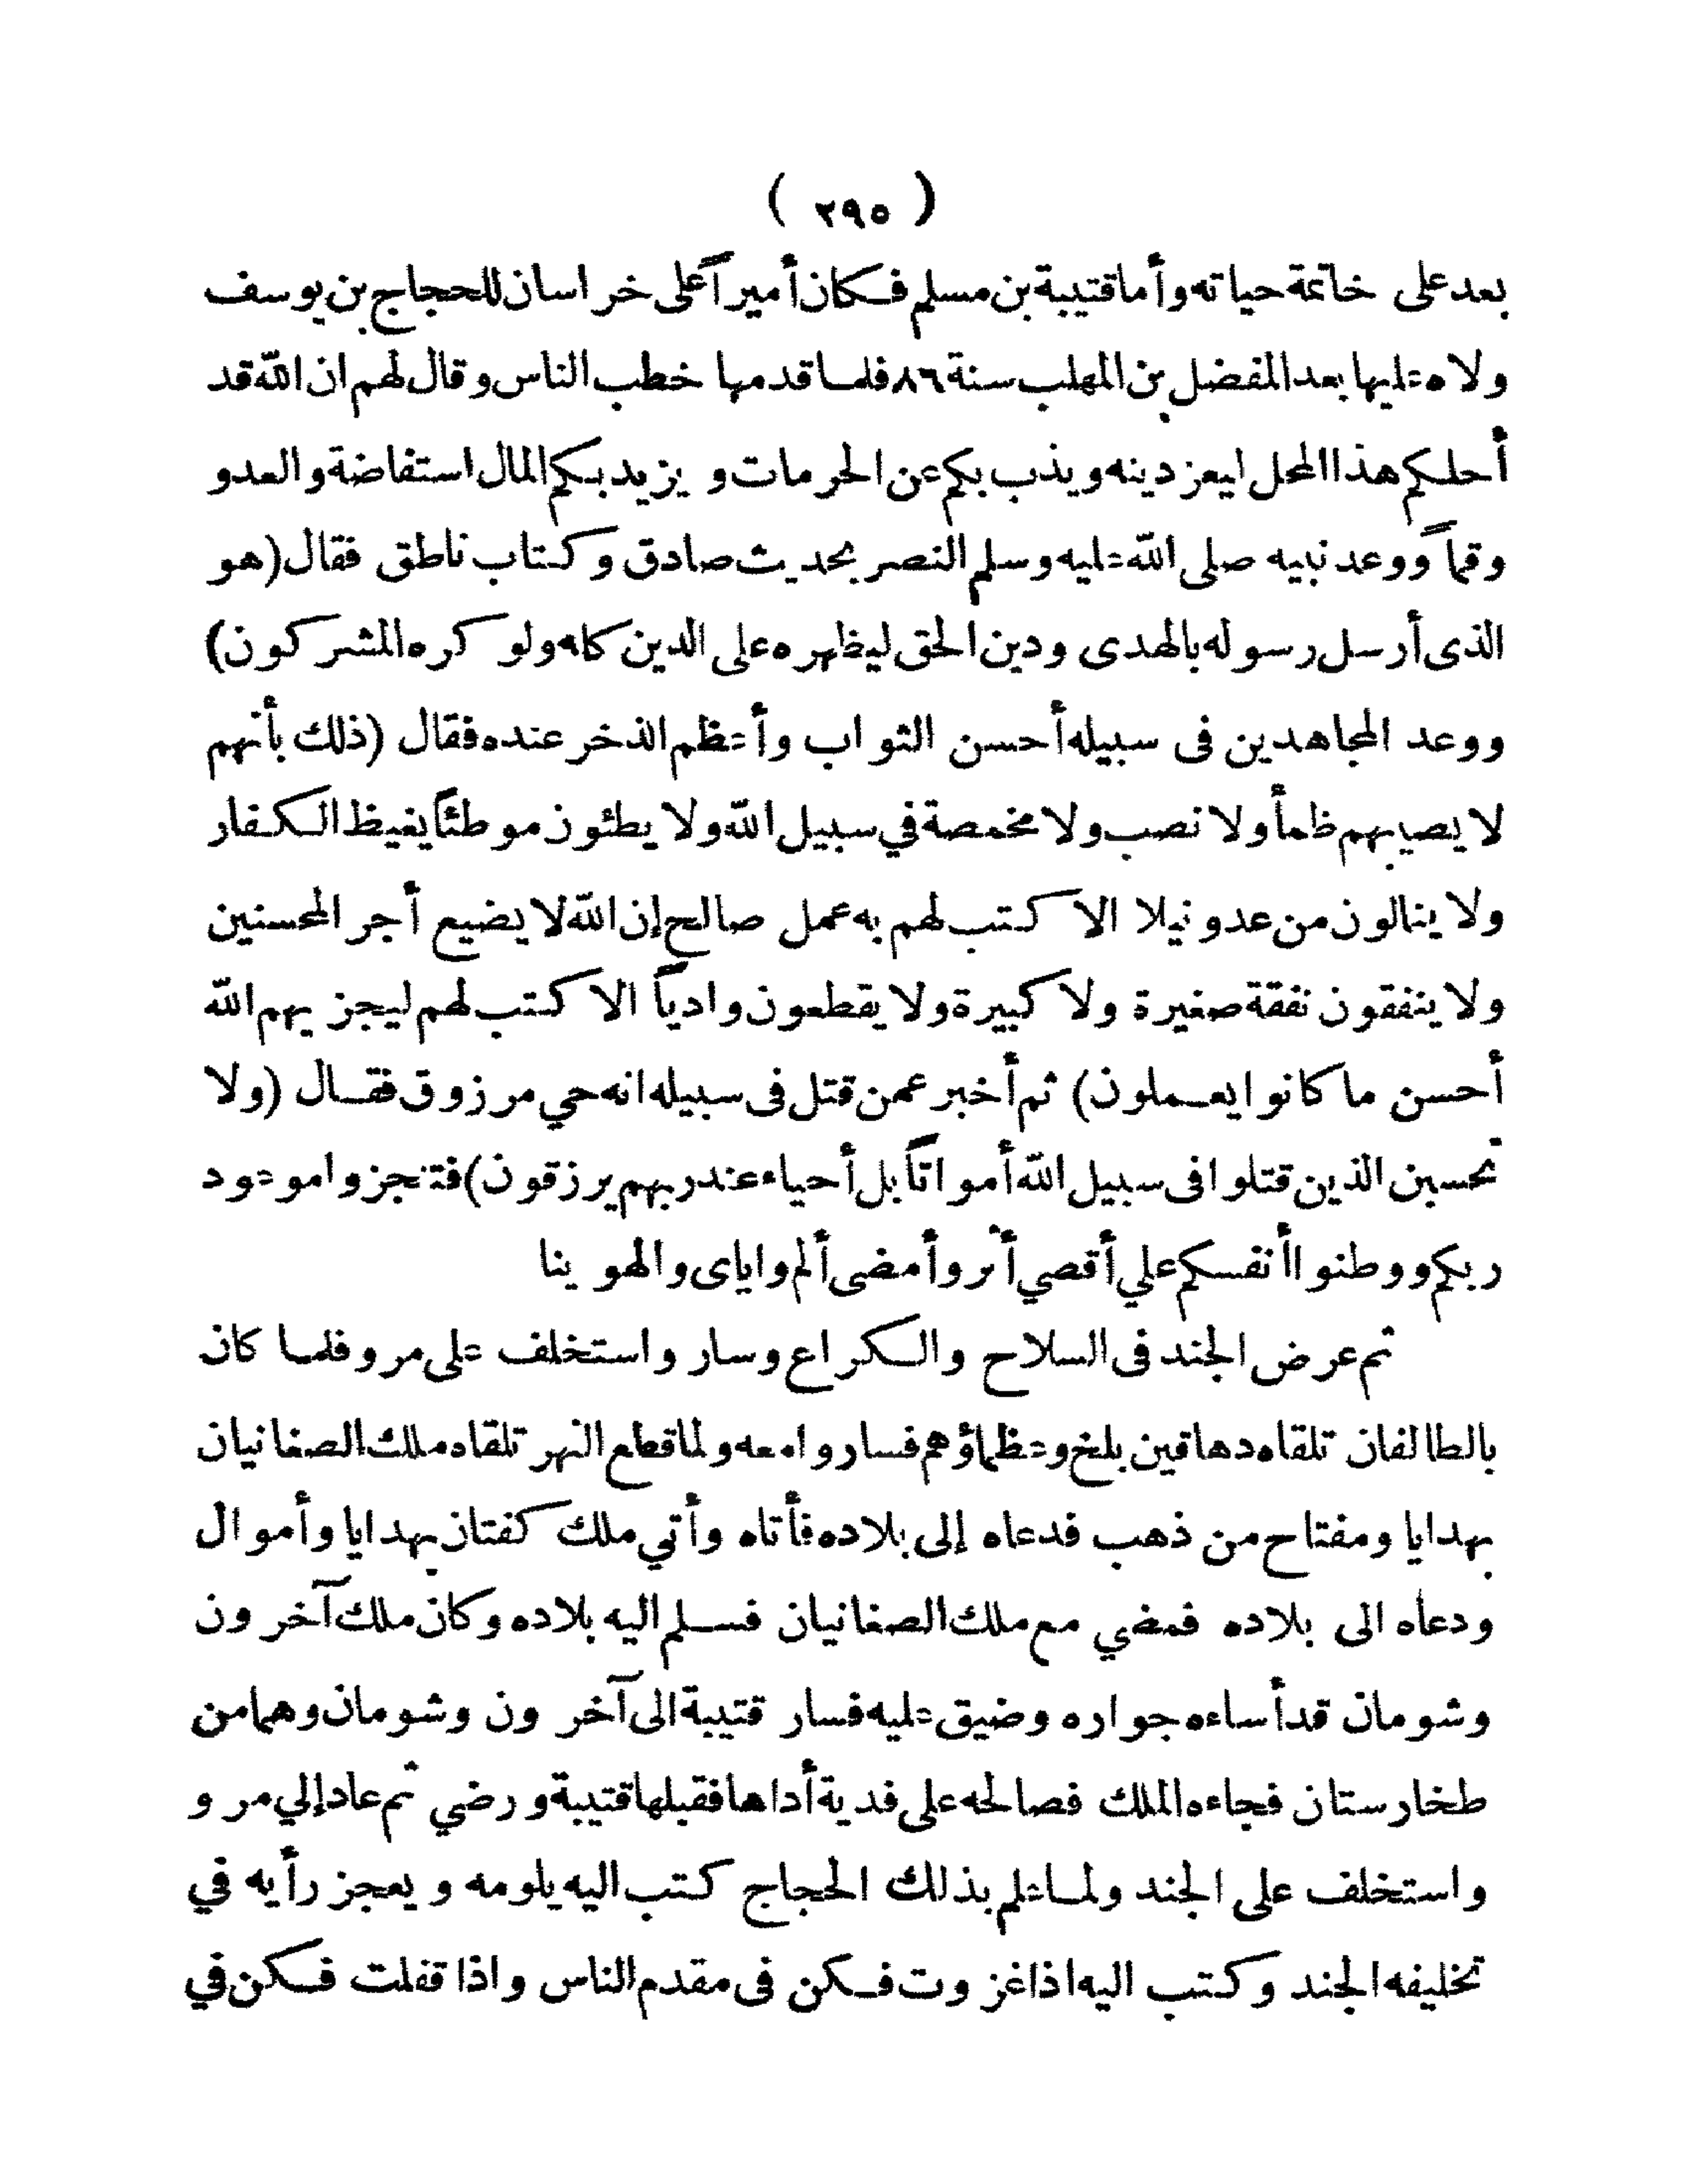 ( ٢٩٥ )
بعد على خاتمة حياته وأما قتيبة بن مسلم فكان أميراً على خراسان للحجاج بن يوسف
ولاه عليها بعد المفضل بن المهلب سنة ٨٦ فلما قدمها خطب الناس وقال لهم ان الله قد
أحلكم هذا المحل ليعز دينه ويذب بكم عن الحرمات ويزيد بكم المال استفاضة والعدو
وقماً ووعد نبيه صلى الله عليه وسلم النصر بحديث صادق وكتاب ناطق فقال (هو
الذى أرسل رسوله بالهدى ودين الحق ليظهره على الدين كله ولو كره المشركون)
ووعد المجاهدين فى سبيله أحسن الثواب وأعظم الذخر عنده فقال (ذلك بأنهم
لا يصيبهم ظمأ ولا نصب ولا مخمصة في سبيل الله ولا يطئون موطئاً يغيظ الكفار
ولا ينالون من عدو نيلا الا كتب لهم به عمل صالح إن الله لا يضيع أجر المحسنين
ولا ينفقون نفقة صغيرة ولا كبيرة ولا يقطعون وادياً الا كتب لهم ليجزيهم الله
أحسن ما كانوا يعملون) ثم أخبر عمن قتل فى سبيله انه حي مرزوق فقال (ولا
تحسبن الذين قتلوا فى سبيل الله أمواتاً بل أحياء عند ربهم يرزقون) فتنجزوا موعود
ربكم ووطنوا أنفسكم علي أقصي أثر وأمضى ألم واياى والهوينا
ثم عرض الجند فى السلاح والكراع وسار واستخلف على مرو فلما كان
بالطالفان تلقاه دهاقين بلخ وعظماؤهم فساروا معه ولما قطع النهر تلقاه ملك الصغانيان
بهدايا ومفتاح من ذهب فدعاه إلى بلاده فأتاه وأتي ملك كفتان بهدايا وأموال
ودعاه الى بلاده فمضي مع ملك الصغانيان فسلم اليه بلاده وكان ملك آخرون
وشومان قد أساءه جواره وضيق عليه فسار قتيبة الى آخرون وشومان وهما من
طخارستان فجاءه الملك فصالحه على فدية أداها فقبلها قتيبة ورضي ثم عاد إلي مرو
واستخلف على الجند ولما علم بذلك الحجاج كتب اليه يلومه ويعجز رأيه في
تخليفه الجند وكتب اليه اذا غزوت فكن فى مقدم الناس واذا قفلت فكن في